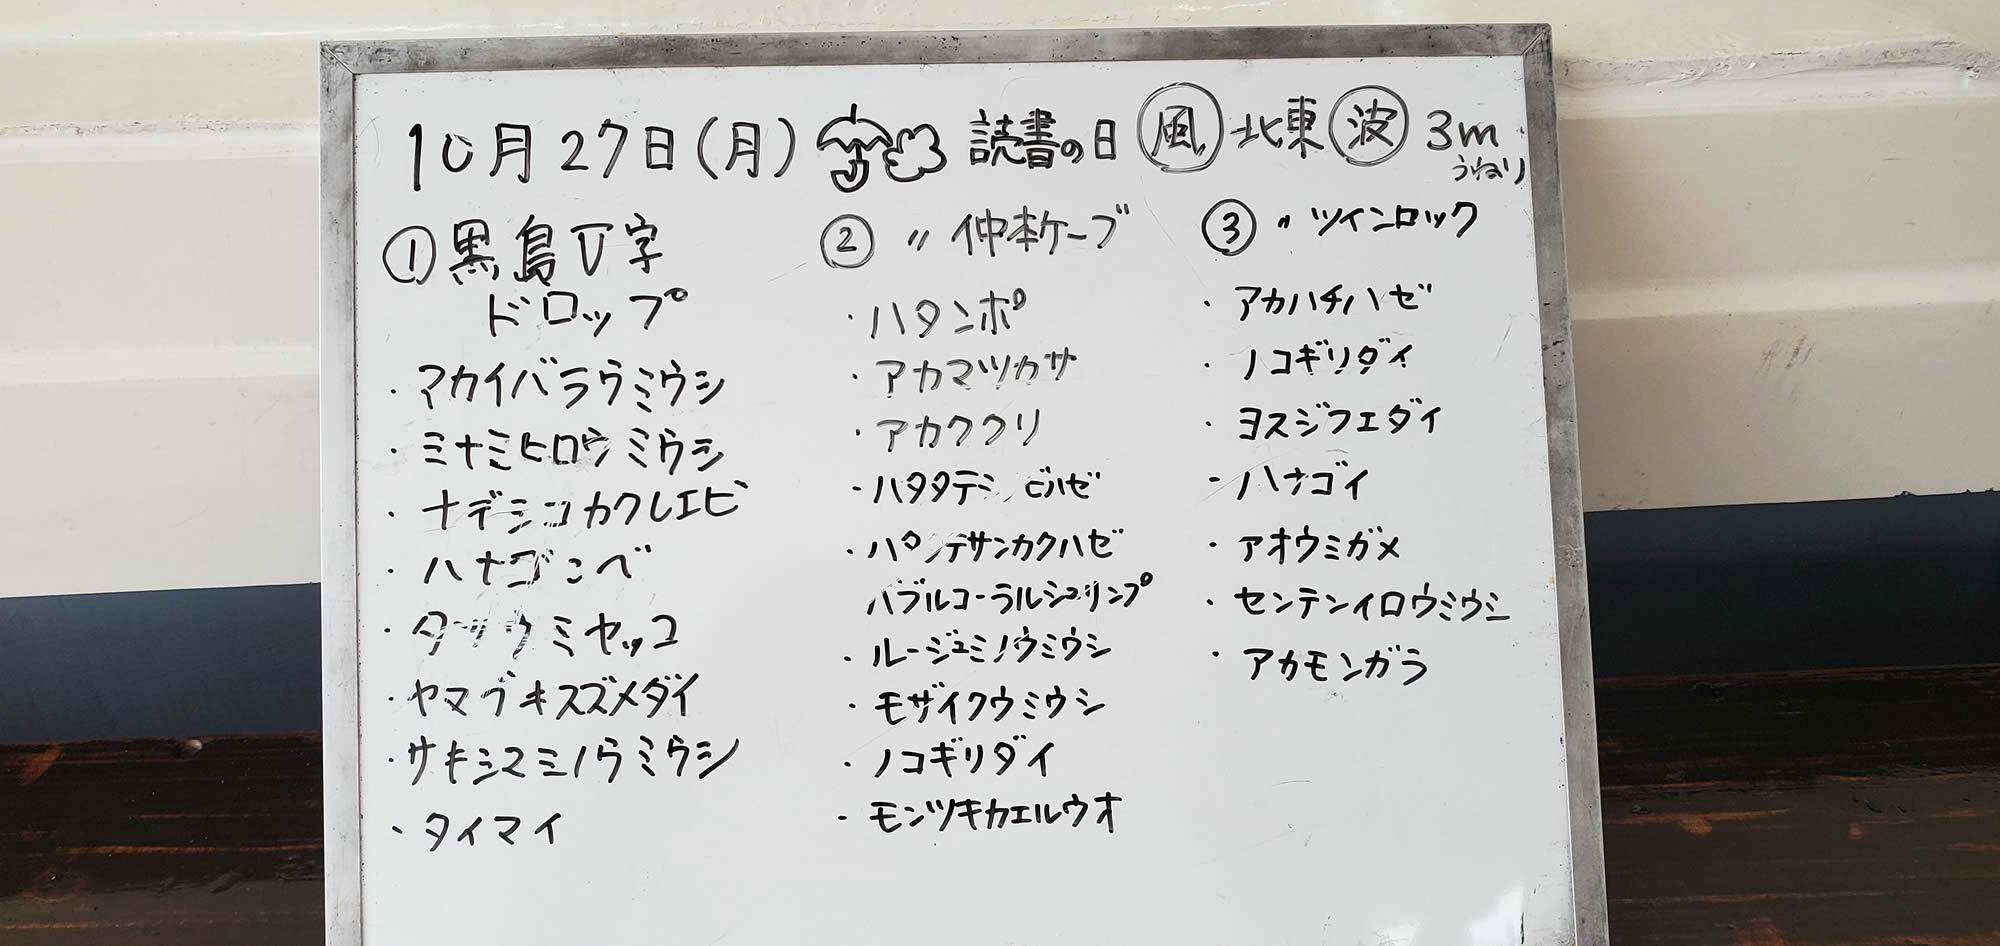 10月27日(月) 読書の日 風 北東 波 3m
うねり
①黒島V字
ドロップ
・アカイバラウミウシ
・ミナミヒロウミウシ
・ナデシコカクレエビ
・ハナゴンベ
・ヤッコ
・ヤマブキスズメダイ
・サキシマミノウミウシ
・タイマイ
② 〃 仲本ケーブ
・ハタンポ
・アカマツカサ
・アカククリ
・ハタタテシ ビハゼ
・サンカクハゼ
バブルコーラルシュリンプ
・ルージュミノウミウシ
・モザイクウミウシ
・ノコギリダイ
・モンツキカエルウオ
③ 〃 ツインロック
・アカハチハゼ
・ノコギリダイ
・ヨスジフエダイ
・ハナゴイ
・アオウミガメ
・センテンイロウミウシ
・アカモンガラ